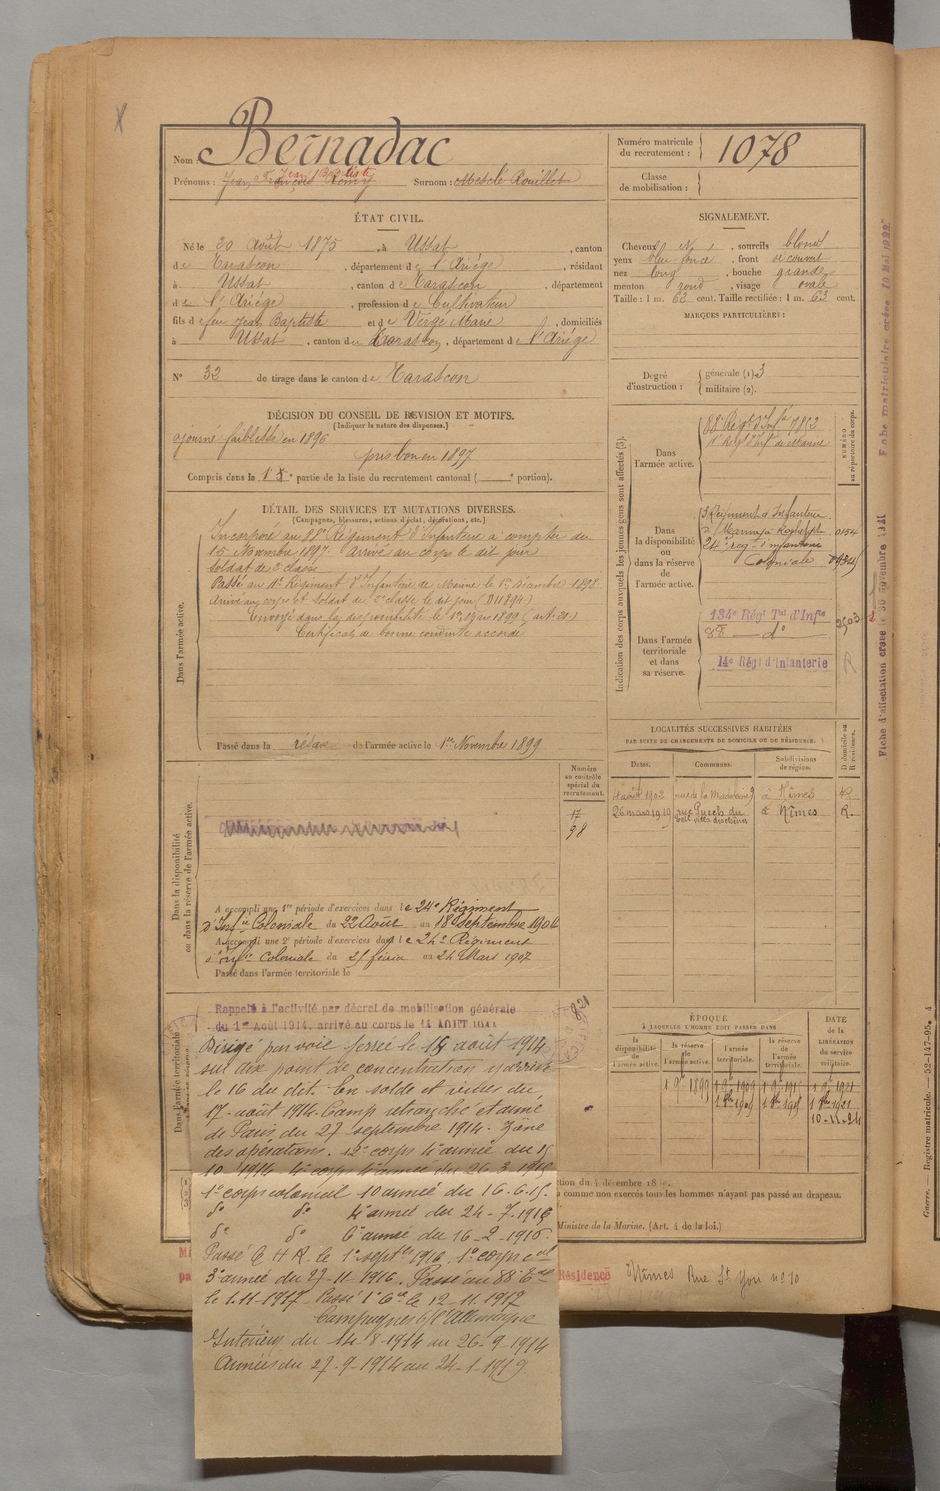 Nom : Bernadac
Prénoms : Jean Baptiste Surnom :
Numéro matricule du recrutement : 1078
Classe de mobilisation :
ÉTAT CIVIL.
Né le 20 Août 1875, à Ussat, canton
de Tarascon, département de l'Ariège, résidant
à Ussat, canton de Tarascon, département
de l'Ariège, profession de Cultivateur
fils de feu Jean Baptiste et de Vergé Marie, domiciliés
à Ussat, canton de Tarascon, département de l'Ariége
N° 32 de tirage dans le canton de Tarascon
SIGNALEMENT.
Cheveux N, sourcils blond
yeux bleu foncé, front découvert
nez long, bouche grande
menton rond, visage ovale
Taille : 1 m. 62 cent. Taille rectifiée : 1 m. 63 cent.
MARQUES PARTICULIÈRES :
Degré d'instruction : générale (1) 3
militaire (2).
DÉCISION DU CONSEIL DE REVISION ET MOTIFS.
(Indiquer la nature des dispenses.)
ajourné faiblesse en 1896
pris bon en 1897
Compris dans la 1e partie de la liste du recrutement cantonal ( portion).
DÉTAIL DES SERVICES ET MUTATIONS DIVERSES.
(Campagnes, blessures, actions d'éclat, décorations, etc.)
Dans l'armée active.
Incorporé au 88e Régiment d'Infanterie à compter du
15 Novembre 1897. Arrivé au corps le dit jour
soldat de 2e classe
Passé au 11e Régiment d'Infanterie de Marine le 1er Décembre 1898
Arrivé au corps et soldat de 2e classe le dit jour (D11894)
Envoyé dans la disponibilité le 1er mars 1899 (art. 21)
Certificat de bonne conduite accordé
Passé dans la réserve de l'armée active le 1er Novembre 1899
Indication des corps auxquels les jeunes gens sont affectés (3).
NUMÉRO au répertoire du corps.
Dans l'armée active.
88e Régt d'Infie 7852
Régt d'Inf. de Marine
Dans la disponibilité ou dans la réserve de l'armée active.
Régiment d'Infanterie
0154
24e rég. d'infanterie
Coloniale
Dans l'armée territoriale et dans sa réserve.
134e Régt Tal d'Infie
88 — do
2503
14e Régt d'Infanterie
Dans la disponibilité ou dans la réserve de l'armée active.
Numéro au contrôle spécial du recrutement.
17
98
A accompli une 1re période d'exercices dans le 24e Régiment
d'Infie Coloniale du 22 Août au 18 septembre 1904
A accompli une 2e période d'exercices dans le 24e Régiment
d'Infie Coloniale du 25 février au 24 Mars 1907
Passé dans l'armée territoriale le
LOCALITÉS SUCCESSIVES HABITÉES
PAR SUITE DE CHANGEMENTS DE DOMICILE OU DE RÉSIDENCE.
Dates. Communes. Subdivisions de région. D domicile ou R résidence.
4 août 1902 rue de la Madeleine 9 à Nîmes R
26 mars 1919 rue Puech du à Nîmes R.
Dans l'armée territoriale
821
Rappelé à l'activité par décret de mobilisation générale
du 1er Août 1914, arrivé au corps le 14 AOUT 1914
Dirigé par voie ferrée le 15 août 1914
sur dix point de concentration y arrivé
le 16 du dit. En solde et vivres du
17 août 1914. Camp retranché et armée
de Paris du 27 septembre 1914. Zône
des opérations. 12e corps 4e armée du 15
10 1914 4e corps 4e armée du 26.3.1915
1er corps colonial 10 armée du 16.6.15.
do do 4e armée du 24-7-1915
do do 6e armée du 16-2-1916.
Passé C H R. le 1er septbre 1916, 1er corps cal
3e armée du 27-11-1916. Passé au 88e
le 1.11-1917 Passé 1e Cie le 12-11-1917
Campagnes c/ l'Allemagne
Intérieur du 14-8-1914 au 26-9-1914
Armées du 27-9-1914 au 24-1-1919.
ÉPOQUE
À LAQUELLE L'HOMME DOIT PASSER DANS
DATE de la LIBÉRATION du service militaire.
la disponibilité de l'armée active. la réserve de l'armée active. l'armée territoriale. la réserve de l'armée territoriale.
1 9bre 1899
10-11-24
à comme non exercés tous les hommes n'ayant pas passé au drapeau.
Ministre de la Marine. (Art. 4 de la loi.)
Résidence Nîmes Rue St Yon no 10
Fiche d'affectation créée le 30 novembre 1921 Fiche matriculaire créée 10 Mai 1922
Guerre. — Registre matricule. — 52-147-95. 4